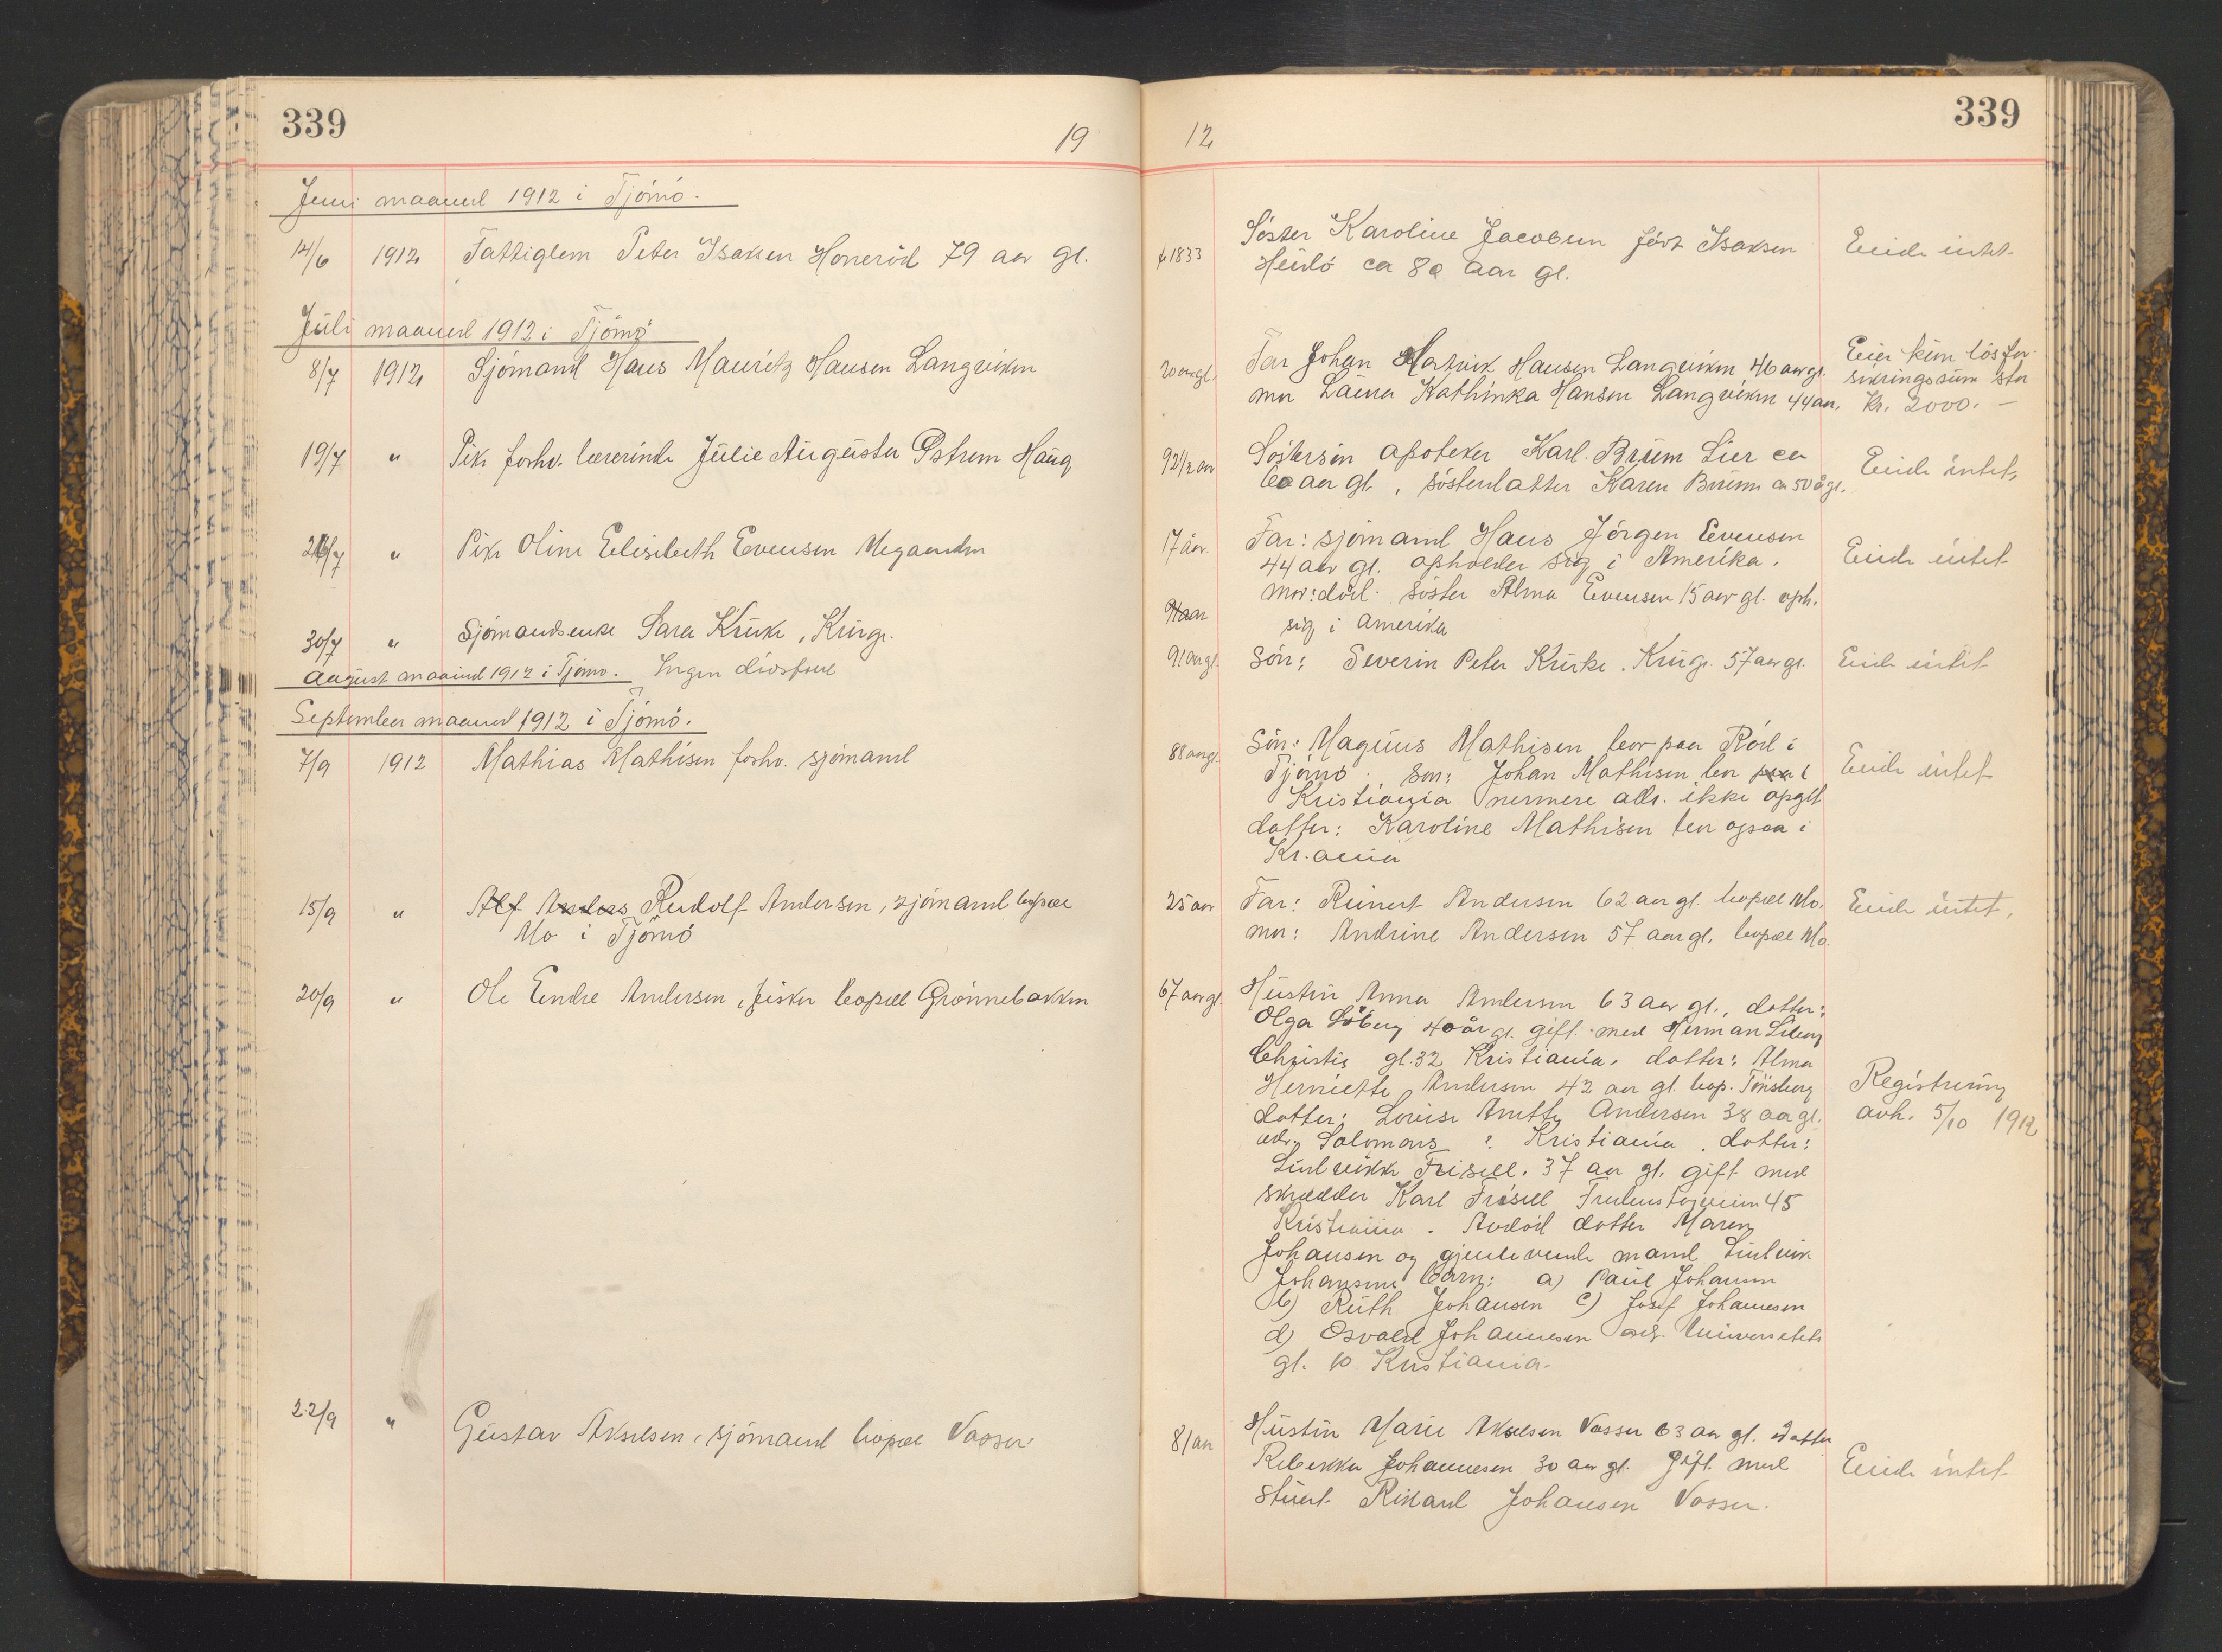 339
19
Juni maaned 1912 i Tjömö.
14/6 1912 Fattiglem Peter Isaksen Honeröd 79 aar gl.
Juli maaned 1912 i Tjömö
8/7 1912 Sjömand Hans Mauritz Hansen Langviken
19/7 " Pike forhv. lærerinde Julie Augusta Østrem Haug
26/7 " Pike Oline Elisabeth Evensen
30/7 " Sjömandsenke Sara Kruke, Kruge.
August maaned 1912 i Tjömö. Ingen dödsfald
September maaned 1912 i Tjömö.
7/9 1912 Mathias Mathisen forhv. sjömand
15/9 " Alf Anders Rudolf Andersen, sjömand bopæl
Mo i Tjömö
20/9 " Ole Endre Andersen, fisker bopæl Grönnebakken
22/9 " Gustav Akselsen, sjömand bopæl Vasser
12
339
f 1833 Söster Karoline Jacobsen föd Isaksen Eiede intet
Hvidlö ca 80 aar gl.
20 aar gl. Far Johan Hansen Langviken 46 aar gl. Eier kun lösfor
mor Laura Kathinka Hansen Langviken 44 aar. sikringssum stor
Kr. 2000.-
92 1/2 aar Söstersön apoteker Karl Bruun Lier ca Eiede intet,
60 aar gl., sösterdatter Karen Bruun ca 50 å gl.
17 aar. Far: sjömand Hans Jörgen Evensen
44 aar gl. opholder sig i Amerika. Eiede intet
mor: död. söster Alma Evensen 15 aar gl. oph.
91 aar sig i Amerika
91 aar gl. Sön: Severin Peter Kruke. Kruge. 57 aar gl. Eiede intet
88 aar gl. Sön: Magnus Mathisen bor paa Röd i
Tjömö. Sön: Johan Mathisen bor paa i Eiede intet
Kristiania nermere adr. ikke opgit
datter: Karoline Mathisen bor ogsaa i
Kr.ania
25 aar Far: Reinert Andersen 62 aar gl. bopæl Mo. Eiede intet,
mor: Andrine Andersen 57 aar gl. bopæl Mo.
67 aar gl. Hustru Anna Andersen 63 aar gl., datter:
Olga Söberg 40 år gl. gift med Herman Söberg
Christis gt. 32 Kristiania. datter: Alma
Henriette Andersen 42 aar gl. bop. Tönsberg Registrering
datter: Lovise Anette Andersen 38 aar gl. avh. 5/10 1912
adr. Solomons ? Kristiania. datter:
Ludvikke Frisell. 37 aar gl. gift med
skrædder Karl Frisell 45
Kristiania. Avdöd datter Maren
Johansen og gjenlevende mand Ludvik
Johansens barn: a) Paul Johansen
b) Ruth Johansen c) Josef Johannesen
d) Osvald Johannesen adr. Universitets
gt. 10 Kristiania.
81 aar Hustru Marie Akselsen Vasser 63 aar gl. datter
Rebekka Johannesen 30 aar gl. Gift med Eiede intet
stuert Rikard Johansen Vasser.